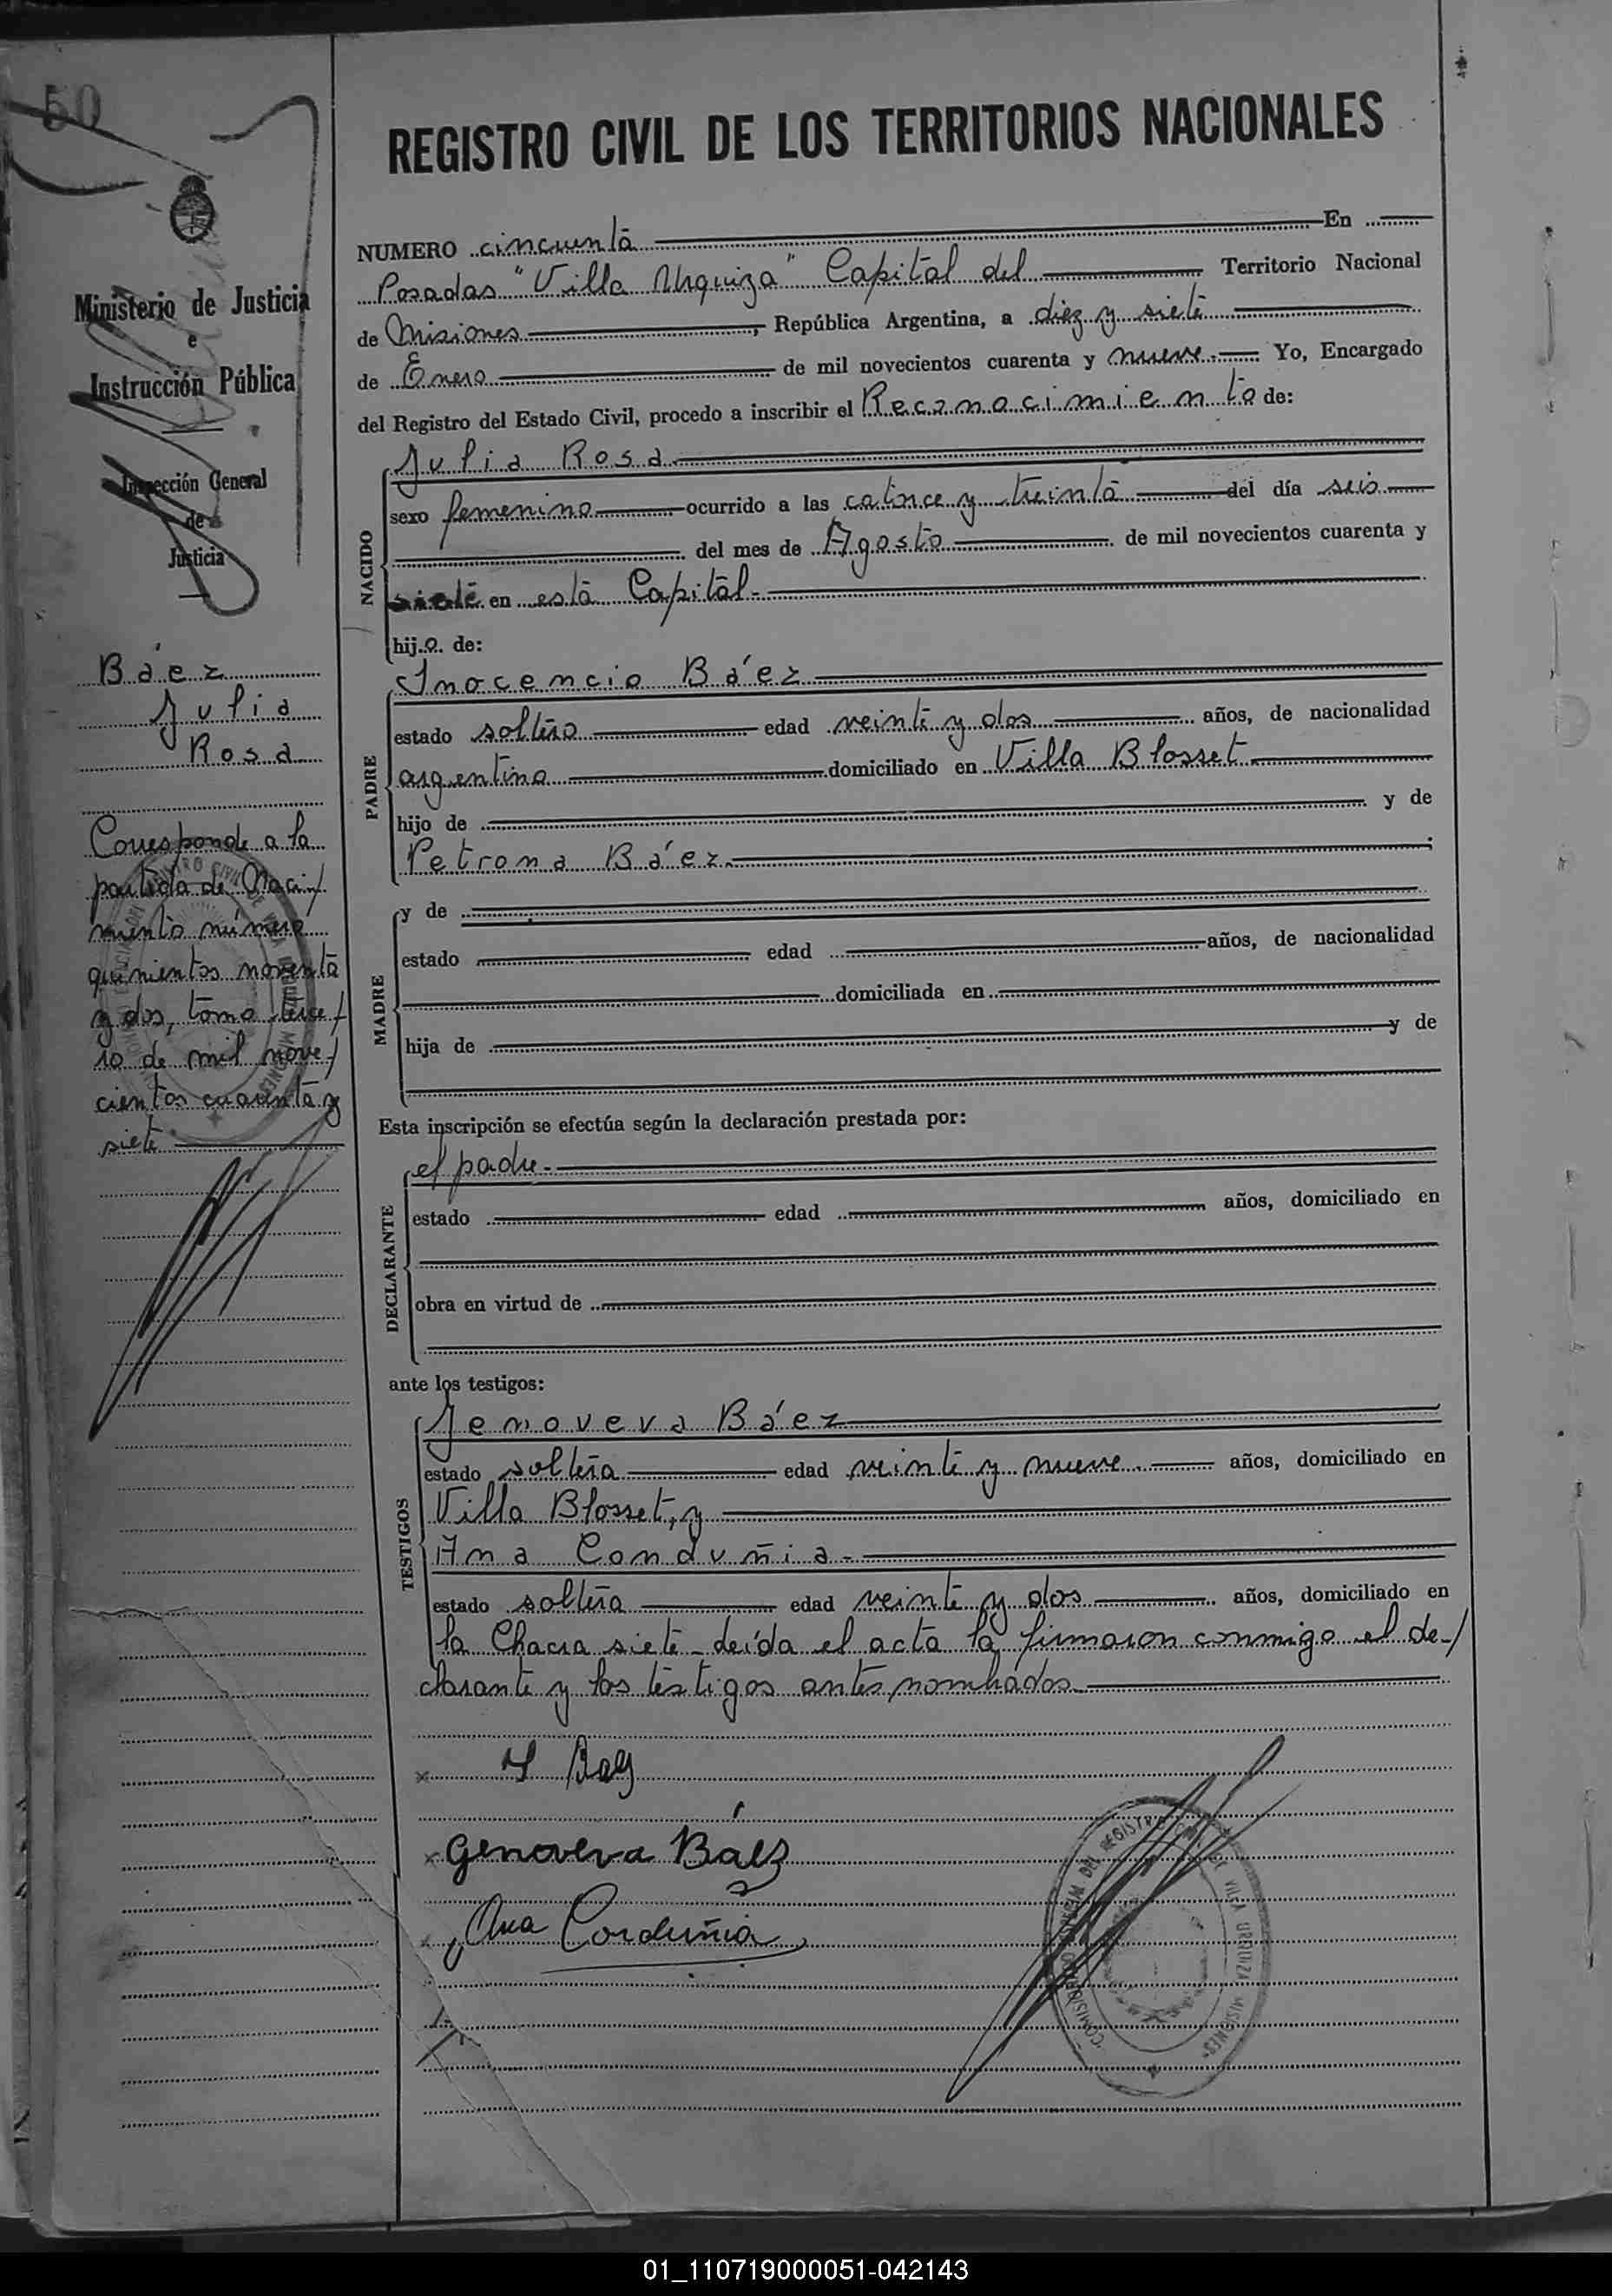 50
REGISTRO CIVIL DE LOS TERRITORIOS NACIONALES
Ministerio de Justicia
e
Instrucción Pública
Inspección General
de
Justicia
Báez
Julia
Rosa
Corresponde a la
partida de Naci/
miento número
quinientos noventa
y dos, tomo terce/
ro de mil nove/
cientos cuarenta y
siete
NUMERO cincuenta En
Posadas "Villa Urquiza" Capital del Territorio Nacional
de Misiones, República Argentina, a diez y siete
de Enero de mil novecientos cuarenta y nueve.- Yo, Encargado
del Registro del Estado Civil, procedo a inscribir el Reconocimiento de:
NACIDO
Julia Rosa.
sexo femenino ocurrido a las catorce y treinta del día seis
del mes de Agosto de mil novecientos cuarenta y
siete en esta Capital.-
hij.a. de:
PADRE
Inocencio Báez
estado soltero edad veinte y dos años, de nacionalidad
argentino domiciliado en Villa Blosset.
hijo de y de
Petrona Báez.
MADRE
y de
estado edad años, de nacionalidad
domiciliada en
hija de y de
Esta inscripción se efectúa según la declaración prestada por:
DECLARANTE
el padre.-
estado edad años, domiciliado en
obra en virtud de
ante los testigos:
TESTIGOS
Jenoveva Báez
estado soltera edad veinte y nueve.- años, domiciliado en
Villa Blosset, y
Ana Conduñia.-
estado soltera edad veinte y dos años, domiciliado en
la Chacra siete.- Leída el acta la firmaron conmigo el de-/
clarante y los testigos antes nombrados.
x Y Baez
x Genoveva Báez
x Ana Corduñia
REGISTRO CIVIL DE VILLA URQUIZA MISIONES
01_110719000051-042143